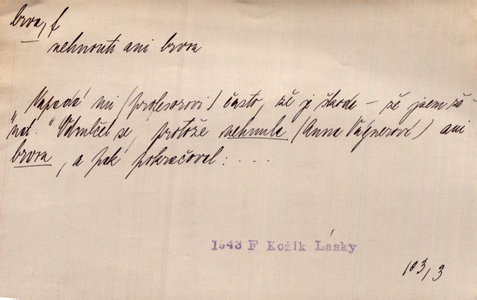 brva, f
nehnouti ani brva
Napadá mi (profesorovi) často, že je škoda – že jsem
"  " Odmlčel se, protože nehnula (Anna Vágnerová) ani
brva, a pak pokračoval: . . . .
1943 F Kožík Lásky
103/3